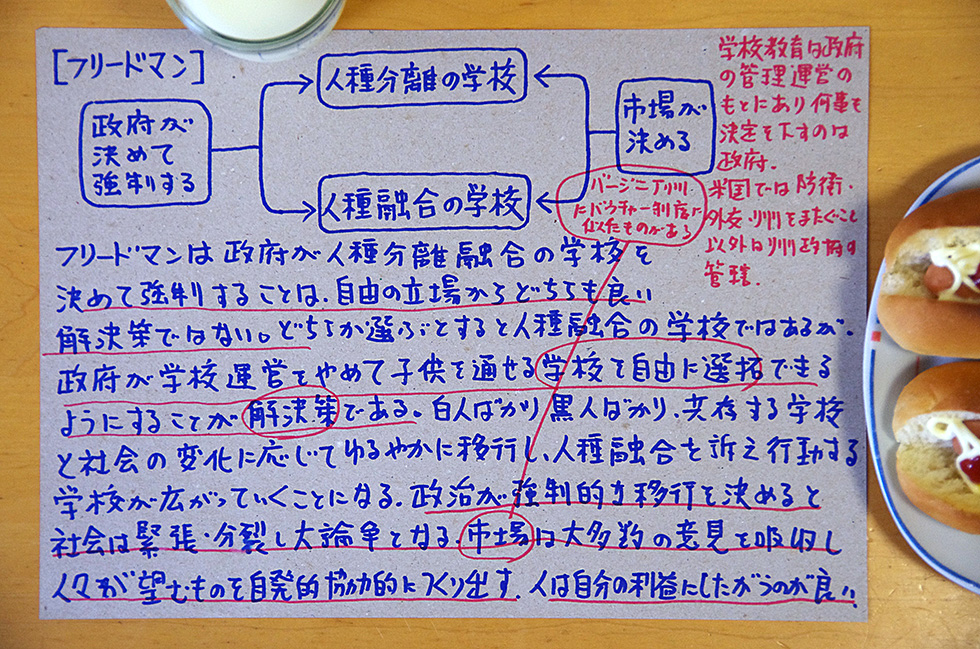 [フリードマン]
人種分離の学校
政府が
決めて
強制する
市場が
決める
人種融合の学校
学校教育は政府
の管理運営の
もとにあり何事も
決定を下すのは
政府.
米国では防衛・
外交・州をまたぐこと
以外は州政府の
管轄.
バージニア州
にバウチャー制度に
似たものがある
フリードマンは政府が人種分離融合の学校を
決めて強制することは、自由の立場からどちらも良い
解決策ではない。どちらか選ぶとすると人種融合の学校ではあるが、
政府が学校運営をやめて子供を通せる学校を自由に選択できる
ようにすることが解決策である。白人ばかり黒人ばかり、共存する学校
と社会の変化に応じてゆるやかに移行し、人種融合を訴え行動する
学校が広がっていくことになる。政治が強制的な移行を決めると
社会は緊張・分裂し大論争となる。市場は大多数の意見を吸収し
人々が望むものを自発的協力的につくり出す. 人は自分の利益にしたがうのが良い.